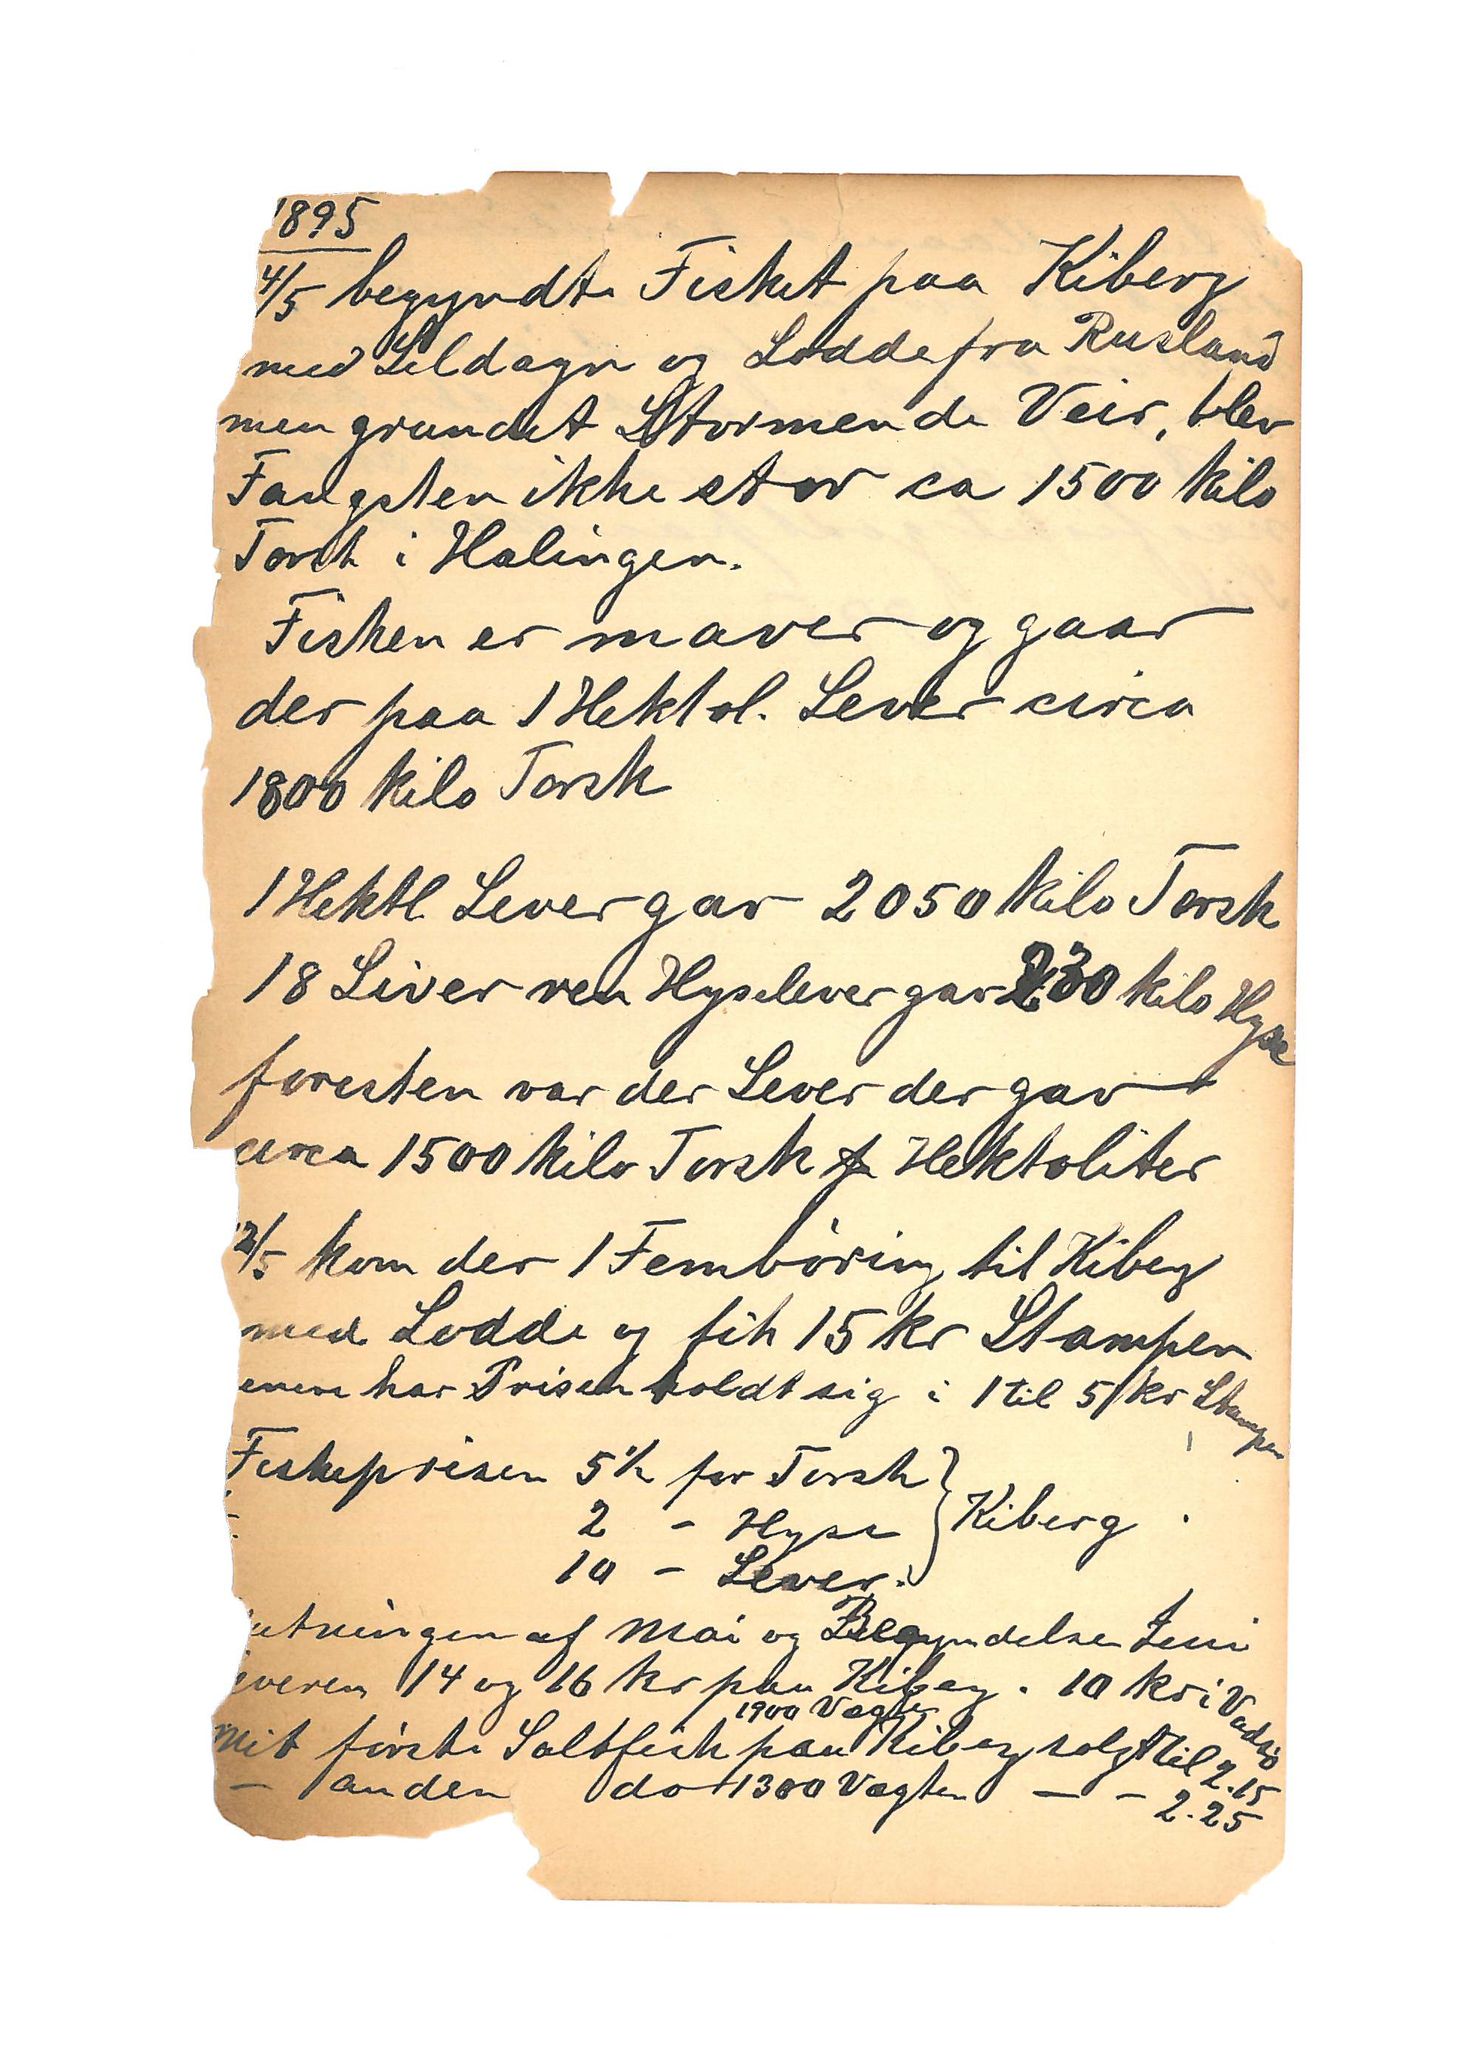 1895
4/5 begyndte Fisket paa Kiberg
med Sildagn og Lodde fra Rusland
men grundet Stormende Veir, blev
Fangsten ikke stor ca 1500 kilo
Torsk i Halingen.
Fisken er maver og gaar
der paa 1 Hektol. Lever circa
1800 kilo Torsk
1 Hektl. Lever gav 2050 kilo Torsk
18 Liver ren Hyselever gav 230 kilo Hyse
foresten var der Lever der gav
circa 1500 kilo Torsk pr Hektoliter
12/5 kom der 1 Fembøring til Kiberg
med Lodde og fik 15 kr Stampen
har Prisen holdt sig i 1 til 5 kr Stampen
Fiskeprisen 5½ for Torsk
2 - Hyse } Kiberg
10 - Lever.
utningen af Mai og Begyndelsen Juni
everen 14 og 16 kr paa Kiberg. 10 kr i Vadsø
1900 Vægter
Mit første Saltfisk paa Kiberg solgt til 2.15
- anden do 1300 Vægten — - 2.25